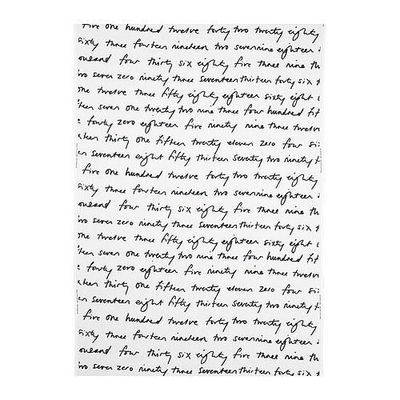 five one hundred twelve forty two twenty eighty
sixty three fourteen nineteen two sevennine eighteen
ousand four thirty six eighty five three nine th
two seven zero ninety three seventeen thirteen forty six t
one twelve three fifty eighty eighteen sixty eight
seven one twenty two nine three four hundred fif
forty zero eighteen five ninety nine three twelve
thirty one fifteen twenty eleven zero four six
seventeen eight fifty thirteen seventy two ninety
five one hundred twelve forty two twenty eighty
sixty three fourteen nineteen two sevennine eighteen
ousand four thirty six eighty five three nine th
two seven zero ninety three seventeen thirteen forty six t
one twelve three fifty eighty eighteen sixty eight
seven one twenty two nine three four hundred fif
forty zero eighteen five ninety nine three twelve
thirty one fifteen twenty eleven zero four six
seventeen eight fifty thirteen seventy two ninety
five one hundred twelve forty two twenty eighty
sixty three fourteen nineteen two sevennine eighteen
ousand four thirty six eighty five three nine th
two seven zero ninety three seventeen thirteen forty six t